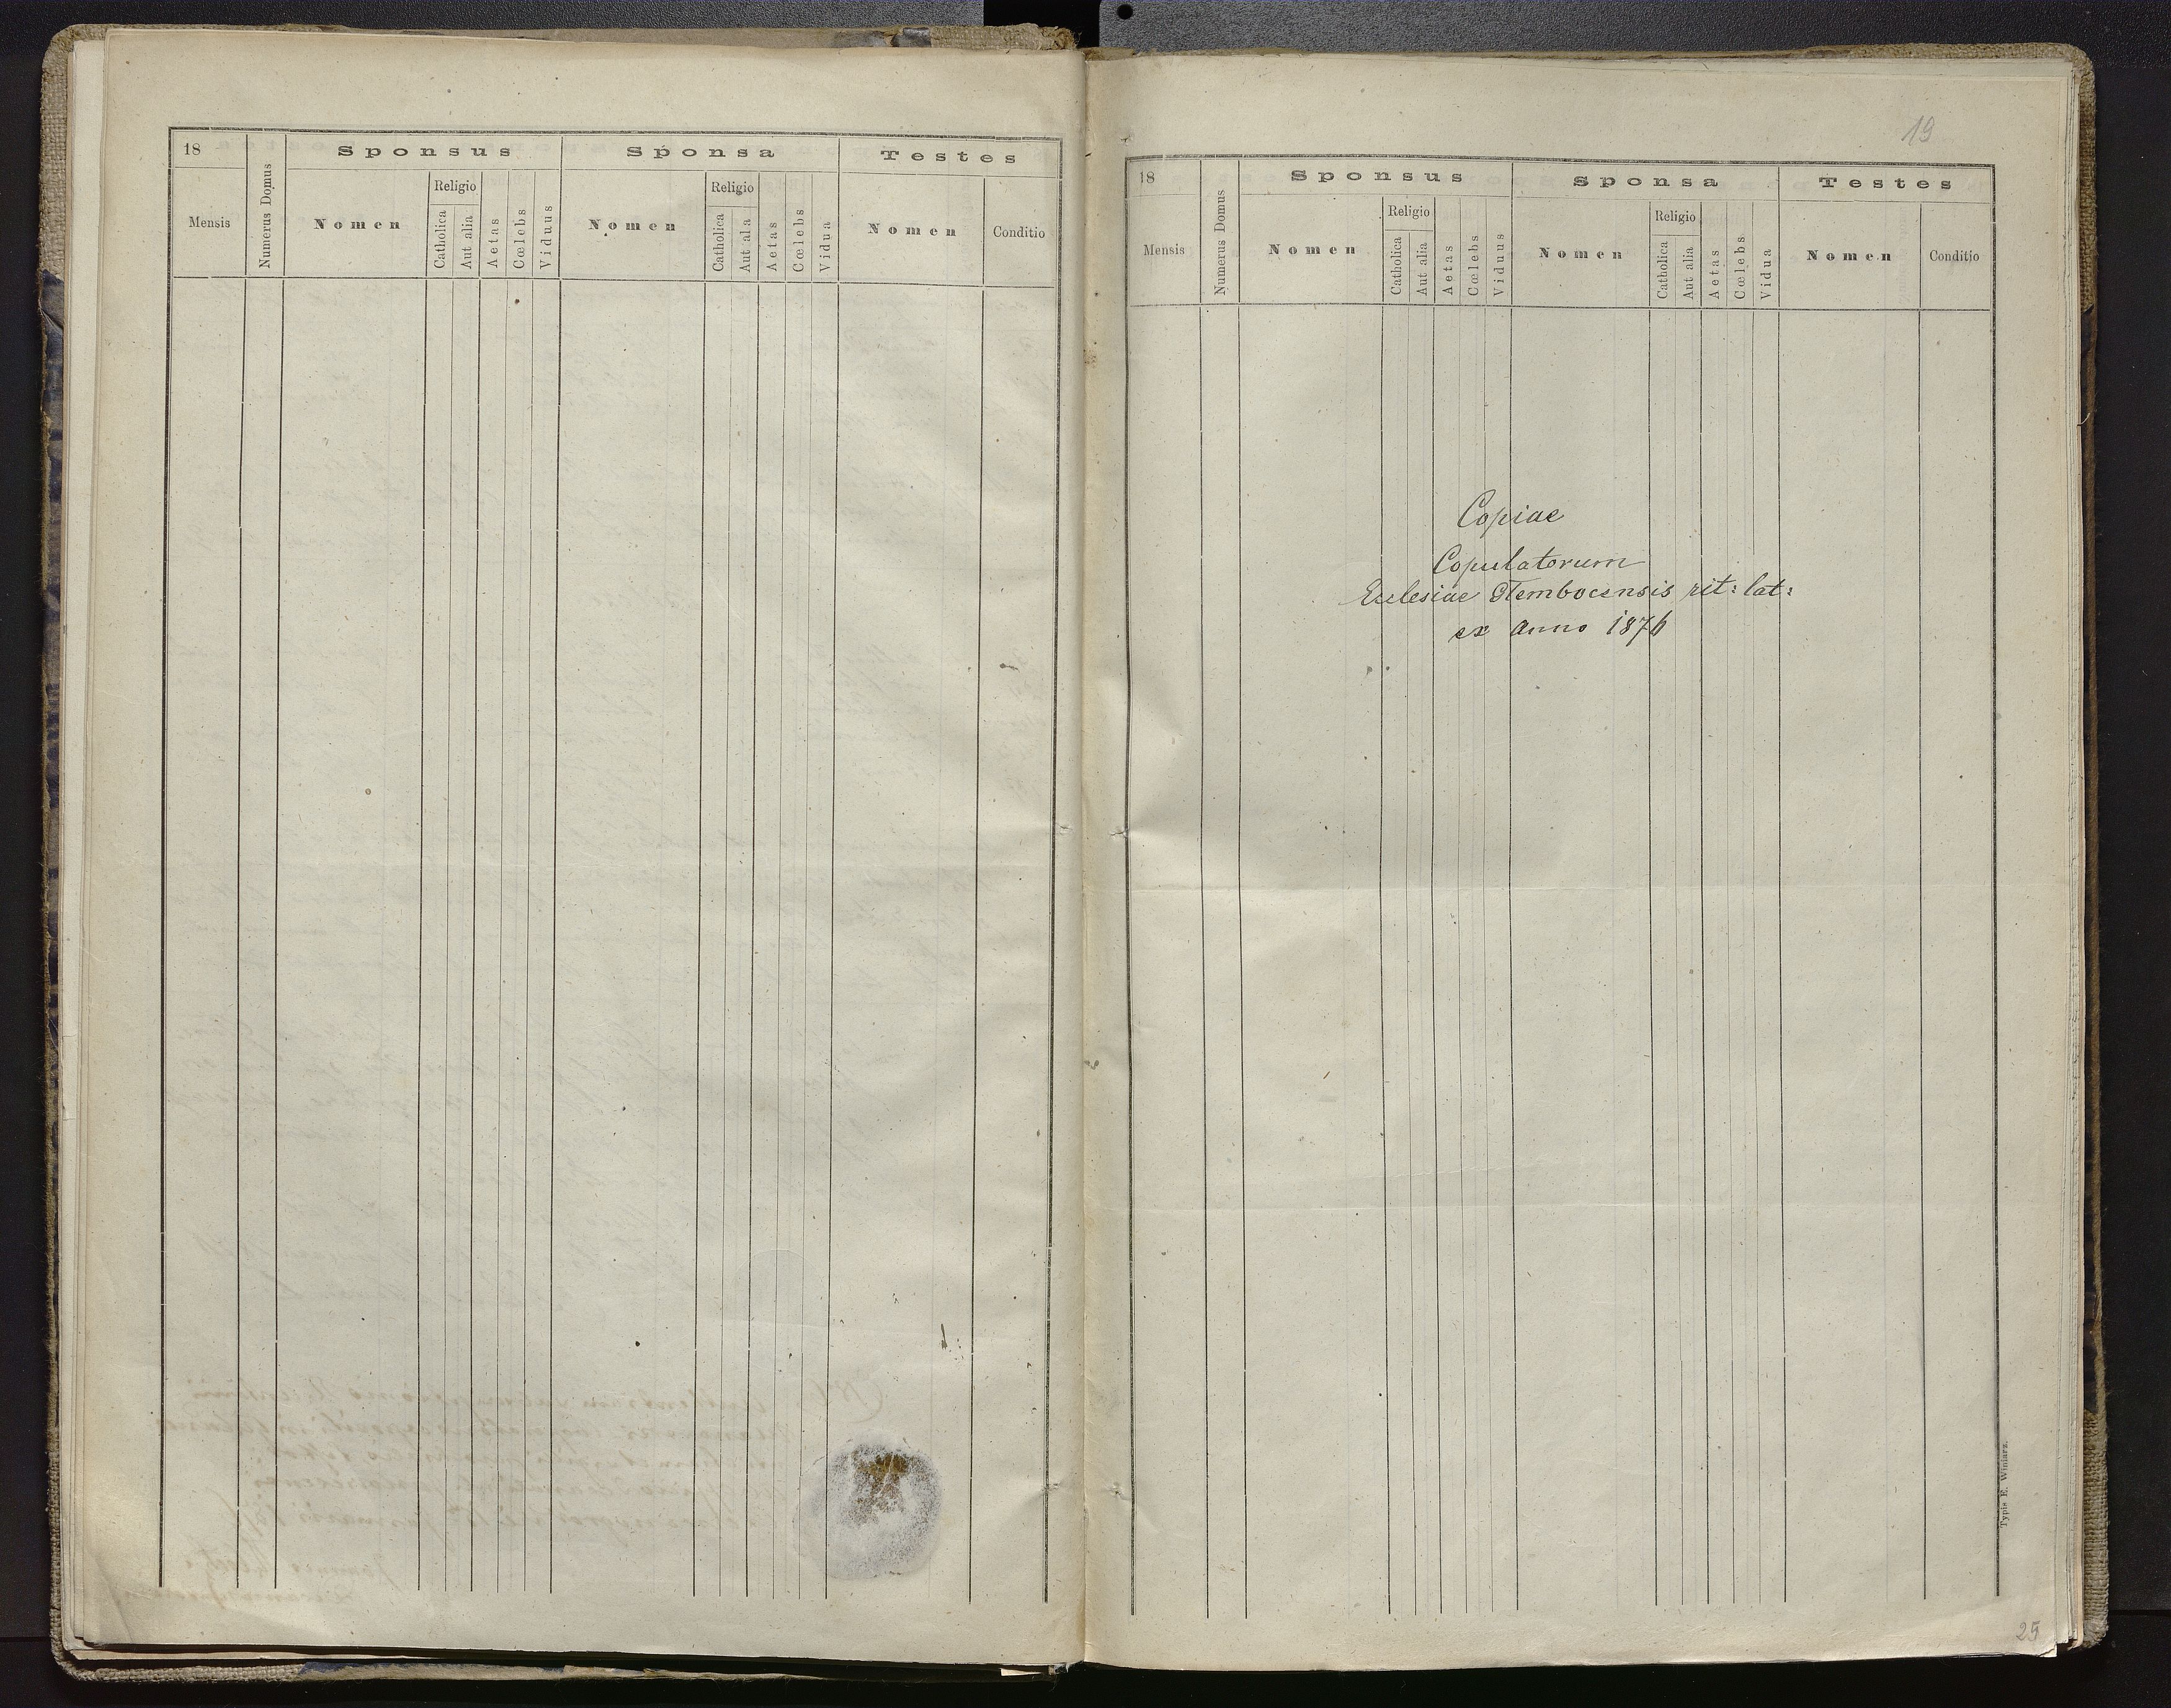 18
Sponsus
Sponsa
Testes
Mensis
Numerus Domus
Nomen
Religio
Catholica
Aut alia
Aetas
Cœlebs
Viduus
Nomen
Religio
Catholica
Aut ala
Aetas
Cœlebs
Vidua
Nomen
Conditio
19
18
Sponsus
Sponsa
Testes
Mensis
Numerus Domus
Nomen
Religio
Catholica
Aut alia
Aetas
Cœlebs
Viduus
Nomen
Religio
Catholica
Aut alia
Aetas
Cœlebs
Vidua
Nomen
Conditio
Copiae
Copulatorum
rit: lat:
ex anno 1876
Typis E. Winiarz.
25